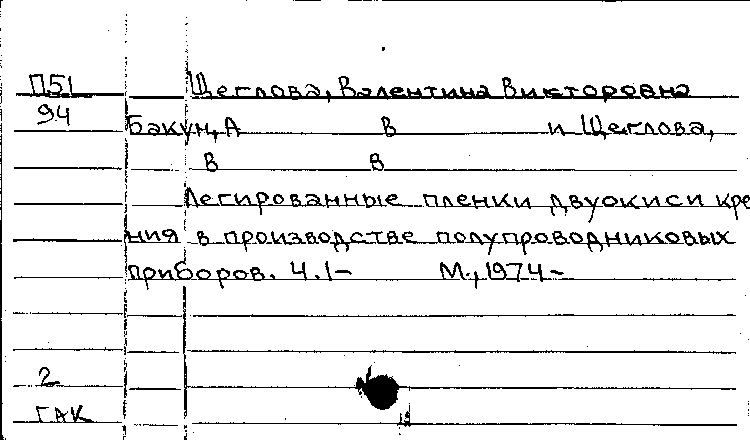 П51 Щеглова, Валентина Викторовна
94 Бакун, А В и Щеглова,
В В
Легированные пленки двуокиси кре
ния в производстве полупроводниковых
приборов. Ч.1- М., 1974-
2
ГАК